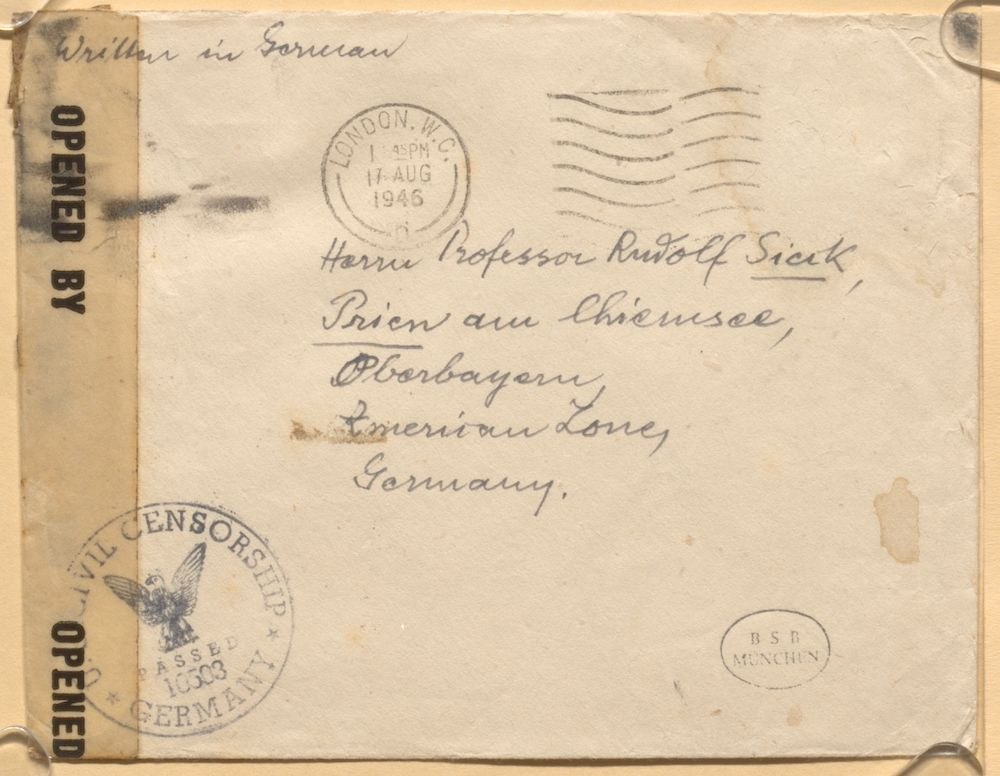 Written in German
OPENED BY
LONDON. W.C.
PM
17 AUG
1946
Herrn Professor Rudolf Sieck,
Prien am Chiemsee,
Oberbayern,
American Zone,
Germany.
CIVIL CENSORSHIP
PASSED
10503
GERMANY
OPENED
B S B
MÜNCHEN